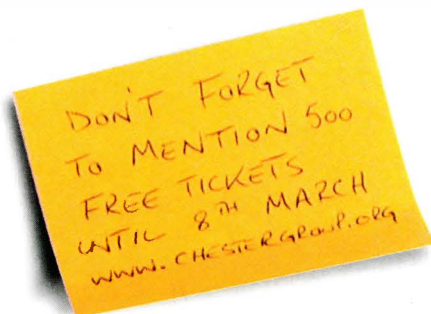 DON'T FORGET
TO MENTION 500
FREE TICKETS
UNTIL 8TH MARCH
WWW.CHESTERGROUP.ORG